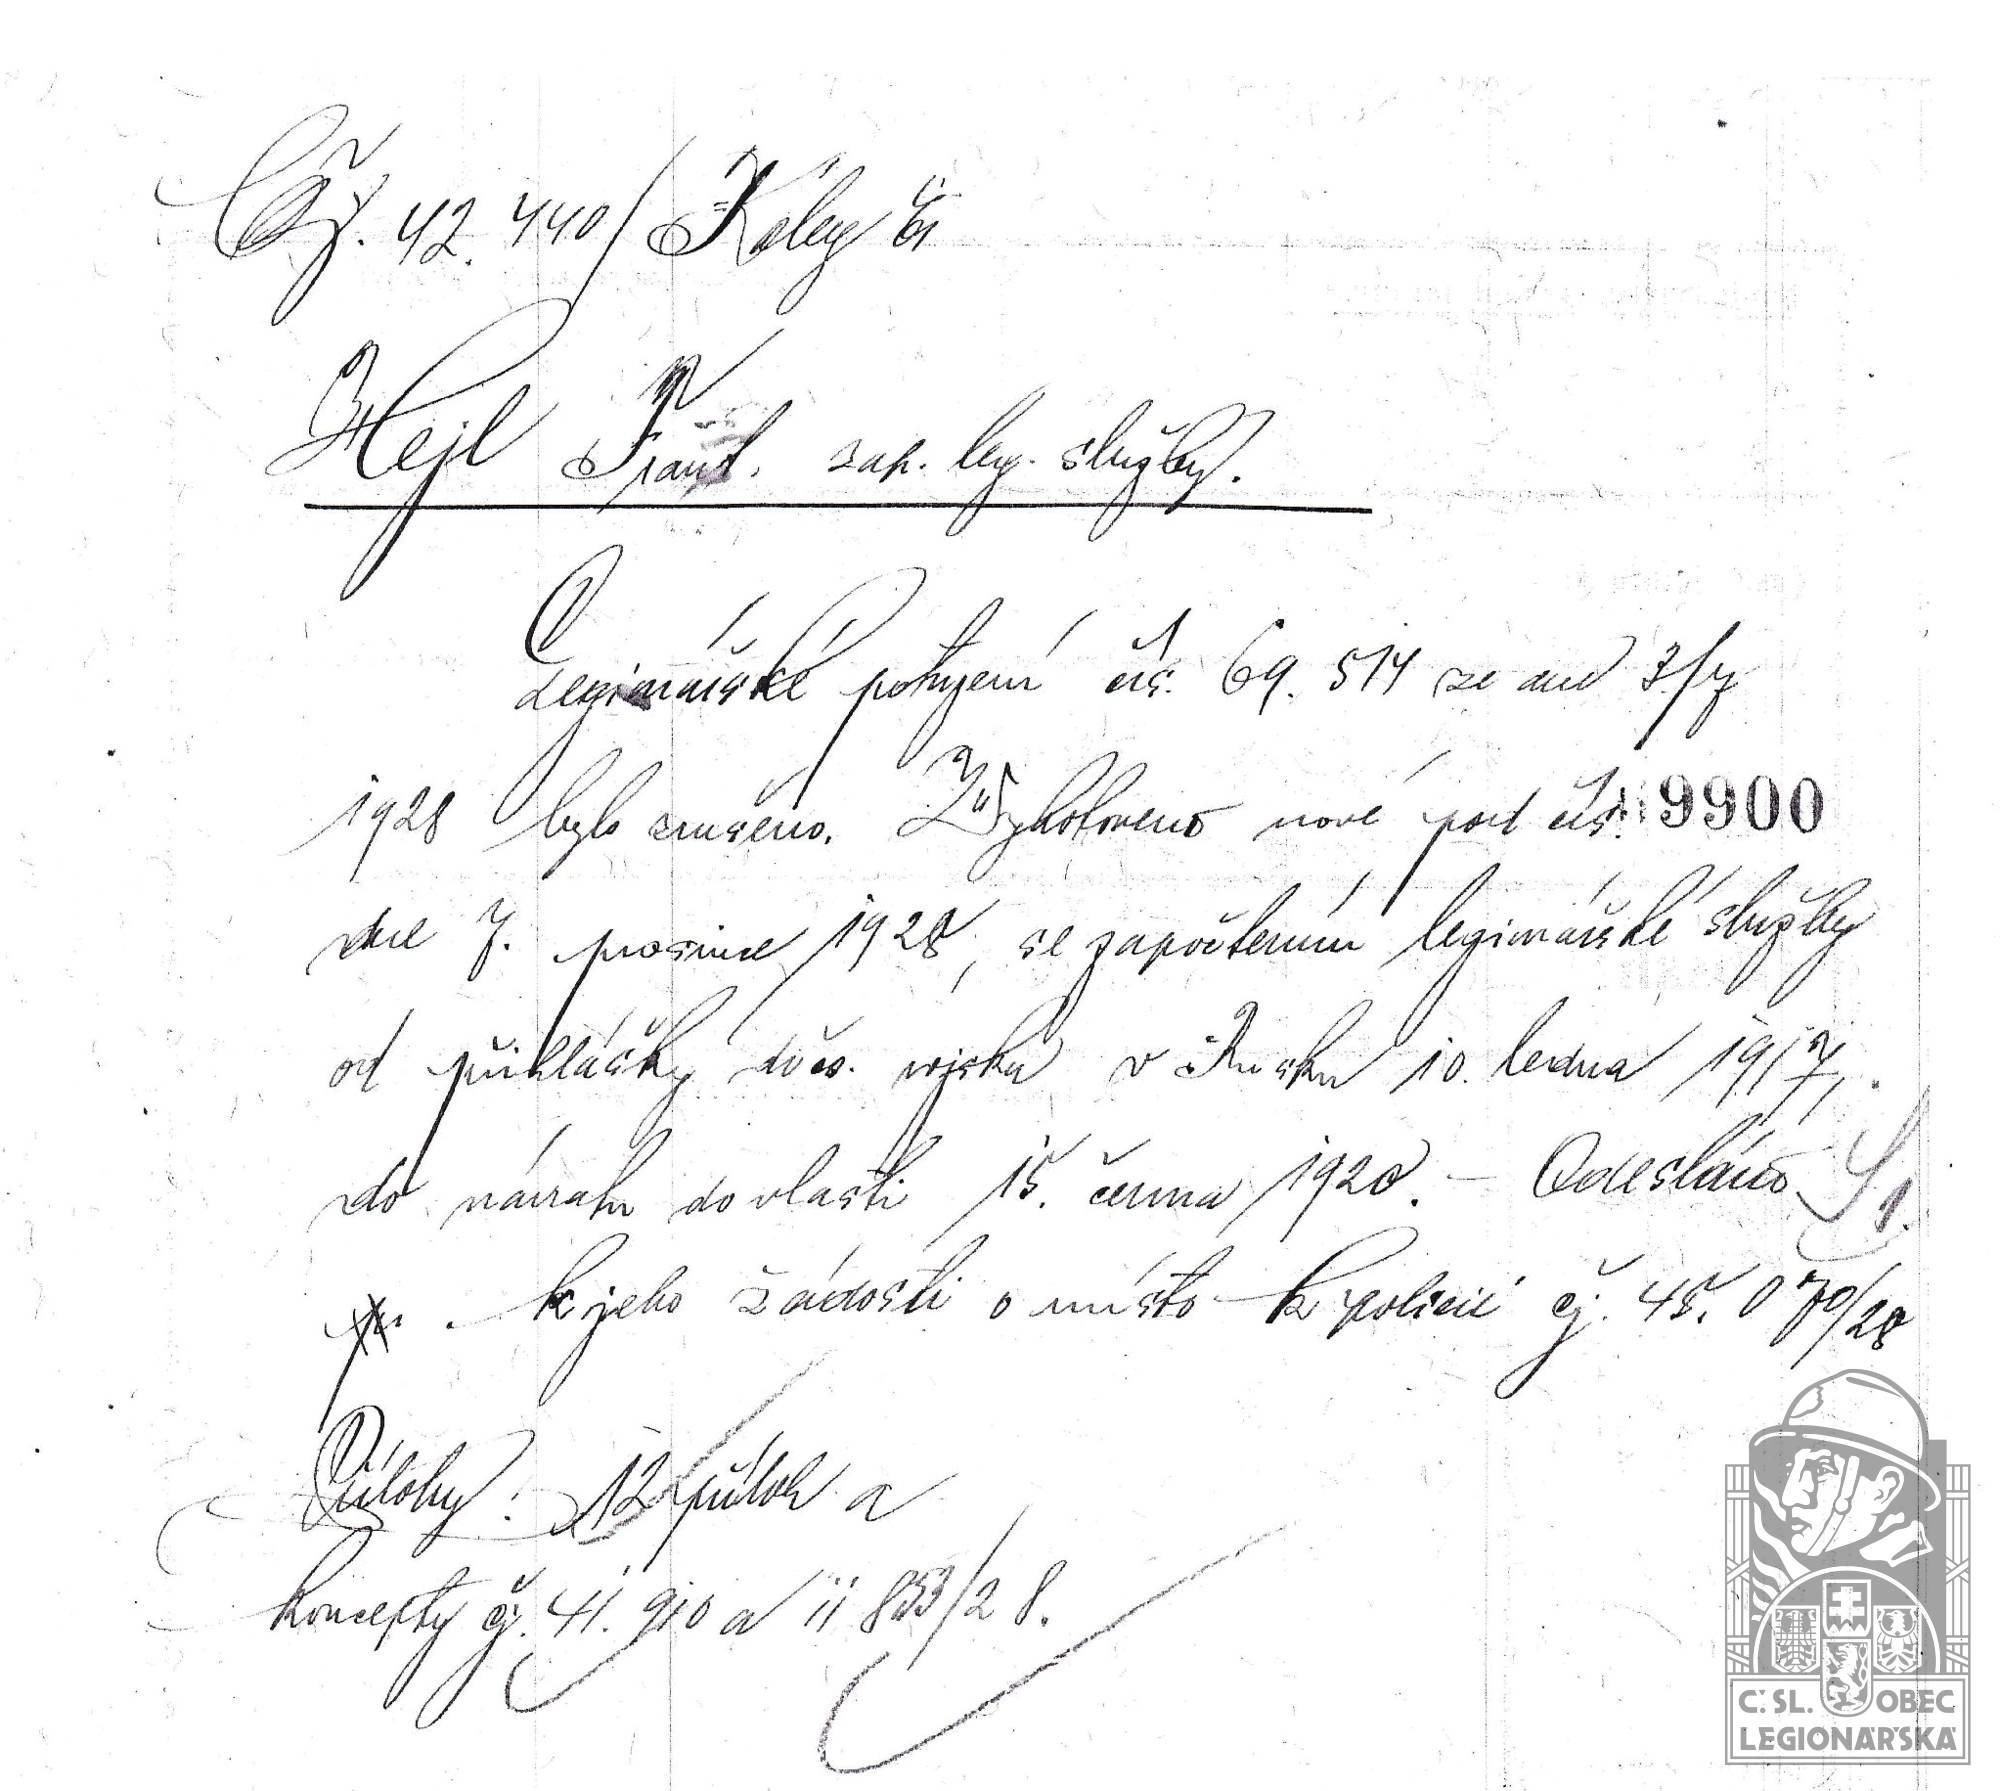 Čj. 42.440/
Hejl Frant. zap. leg. služby.
Legionářské potvrzení čís. 69.514 ze dne 3/7
1928 bylo zrušeno. Vyhotoveno nové pod čís. 9900
dne 7. prosince 1928, se započtením legionářské služby
od přihlášky do čs. vojska v Rusku 10. ledna 1917,
do návratu do vlasti 15. června 1920. – Odesláno
k jeho žádosti o místo k policii čj. 45.070/28
Přílohy: 12 příloh a
koncepty čj. 41.910 a 11853/28.
Č. SL. OBEC
LEGIONÁŘSKÁ